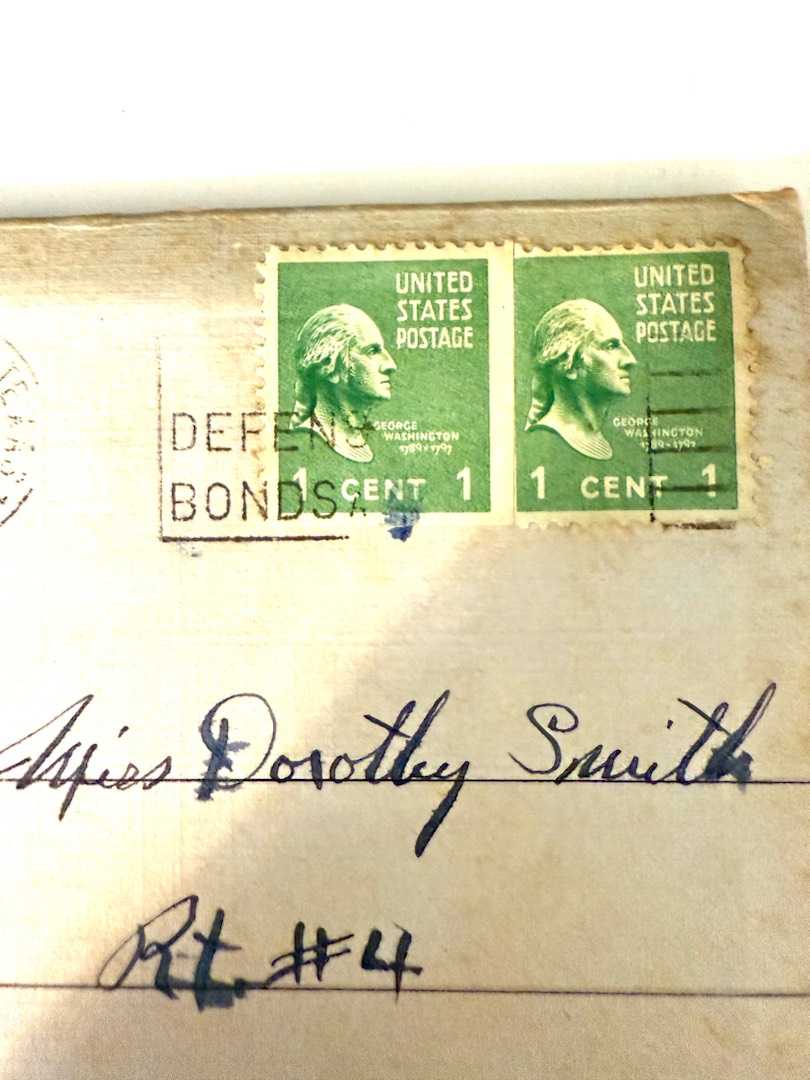 UNITED
STATES
POSTAGE
GEORGE
WASHINGTON
1789-1797
1 CENT 1
UNITED
STATES
POSTAGE
GEORGE
WASHINGTON
1789-1797
1 CENT 1
DEFENS
BONDS
Miss Dorothy Smith
Rt. #4